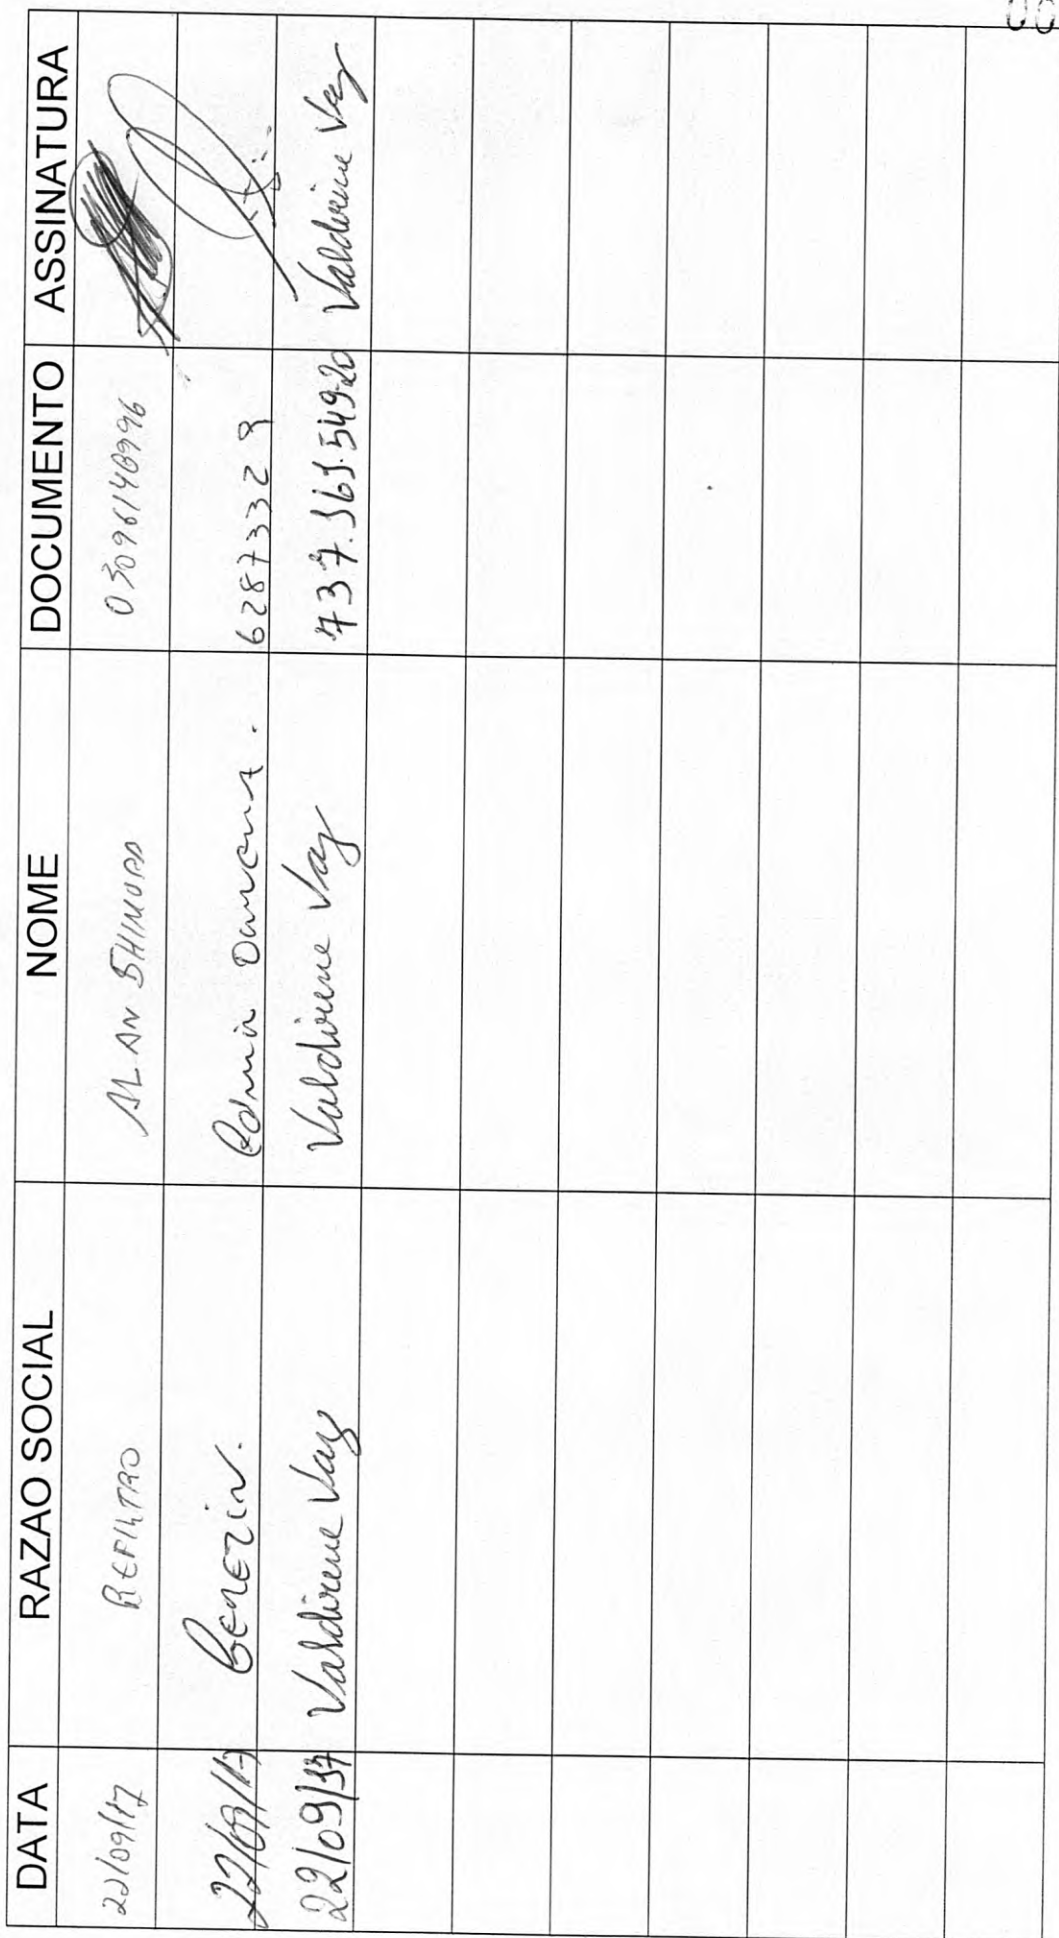 DATA RAZAO SOCIAL NOME DOCUMENTO ASSINATURA
22/09/17 REFILTRO ALAN SHIMURA 03096140996
22/09/17 6287332
22/09/17 Valdirene Vaz Valdirene Vaz 737.565.549-20 Valdirene Vaz